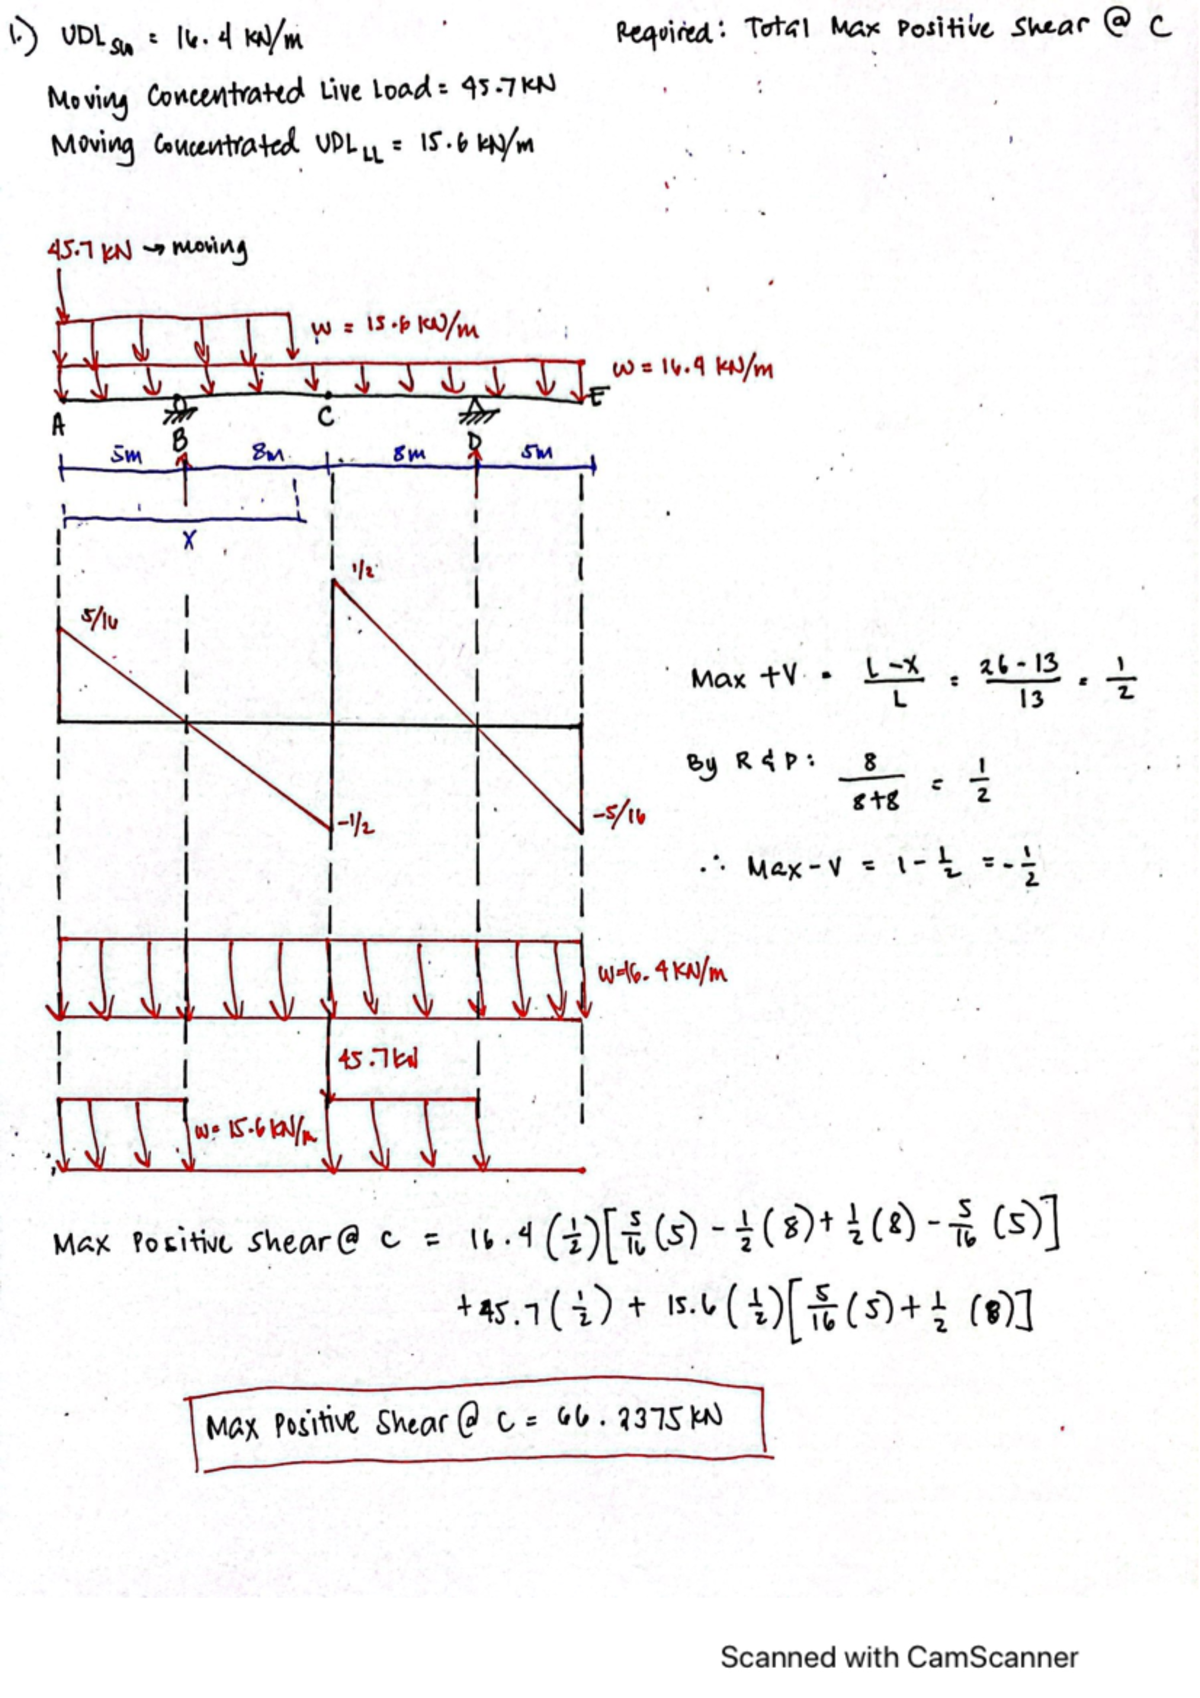 1.) UDL SW = 16.4 KN/m
Required: Total Max Positive Shear @ C
Moving Concentrated Live Load = 45.7 KN
Moving Concentrated UDL LL = 15.6 KN/m
45.7 KN → moving
w = 15.6 KN/m
w = 16.4 KN/m
A B C D E
5m 8m 8m 5m
X
1/2
5/16
Max +V = L-X / L = 26-13 / 13 = 1/2
By R & P: 8 / 8+8 = 1/2
-1/2
-5/16
∴ Max -V = 1 - 1/2 = -1/2
w=16.4 KN/m
45.7 KN
w= 15.6 KN/m
Max Positive Shear @ C = 16.4 (1/2)[5/16 (5) - 1/2 (8) + 1/2 (8) - 5/16 (5)]
+ 45.7 (1/2) + 15.6 (1/2)[5/16 (5) + 1/2 (8)]
Max Positive Shear @ C = 66.2375 KN
Scanned with CamScanner